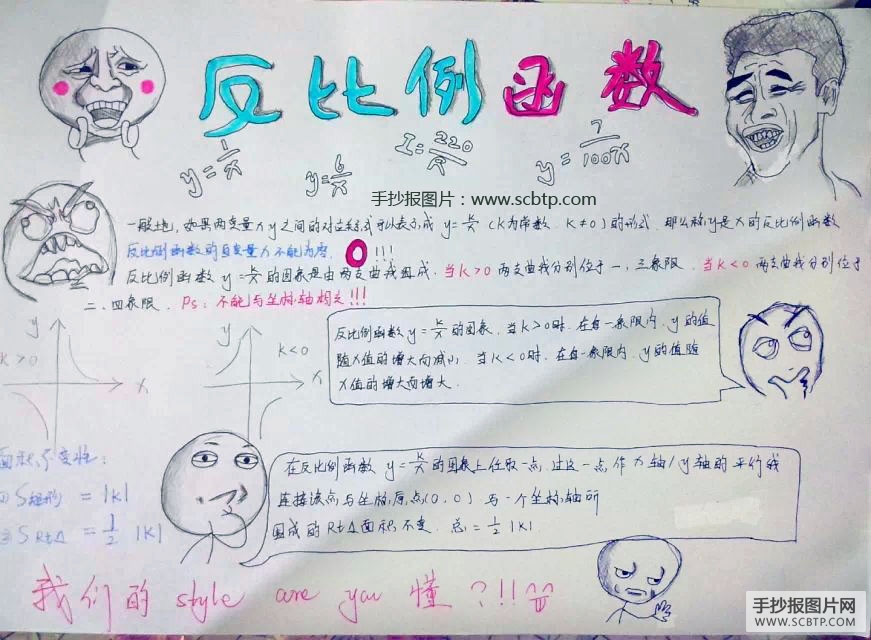 反比例函数
y=1/x
y=6/x
I=220/R
y=7/100x
手抄报图片：www.scbtp.com
一般地，如果两变量x y之间的对应关系式可以表示成 y=k/x (k为常数．k≠0)的形式．那么称y是x的反比例函数
反比例函数的自变量x不能为零．0!!!
反比例函数 y=k/x的图象是由两支曲线组成．当k>0两支曲线分别位于一，三象限．当k<0两支曲线分别位于
二、四象限．Ps：不能与坐标轴相交!!!
y
k>0
x
y
k<0
x
反比例函数y=k/x的图象，当k>0时．在每一象限内．y的值
随x值的增大而减小．当k<0时．在每一象限内．y的值随
x值的增大而增大．
面积不变性：
①S矩形 = |k|
②S Rt△ = 1/2 |k|
在反比例函数 y=k/x的图象上任取一点，过这一点，作x轴/y轴的平行线
连接该点与坐标原点(0,0) 与一个坐标轴所
围成的Rt△面积不变．总=1/2 |k|
我们的 style are you 懂？!!
手抄报图片网
WWW.SCBTP.COM